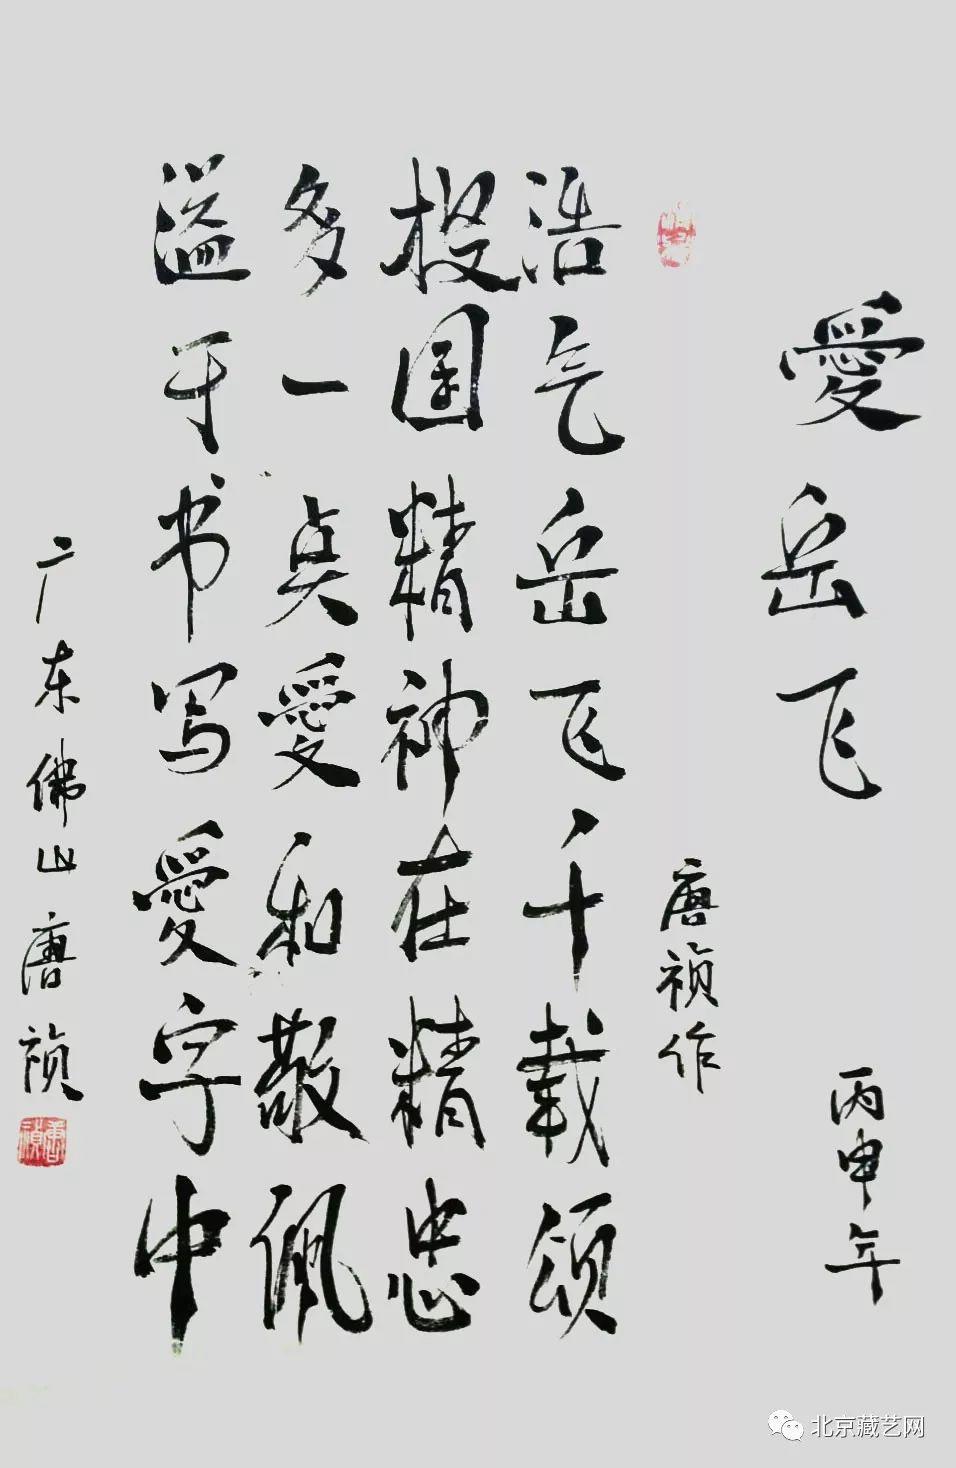 愛岳飞
丙申年
唐祯作
浩气岳飞千载颂
报国精神在精忠
多一奌愛和敬佩
溢于书写愛字中
广东佛山唐祯
唐祯
北京藏艺网